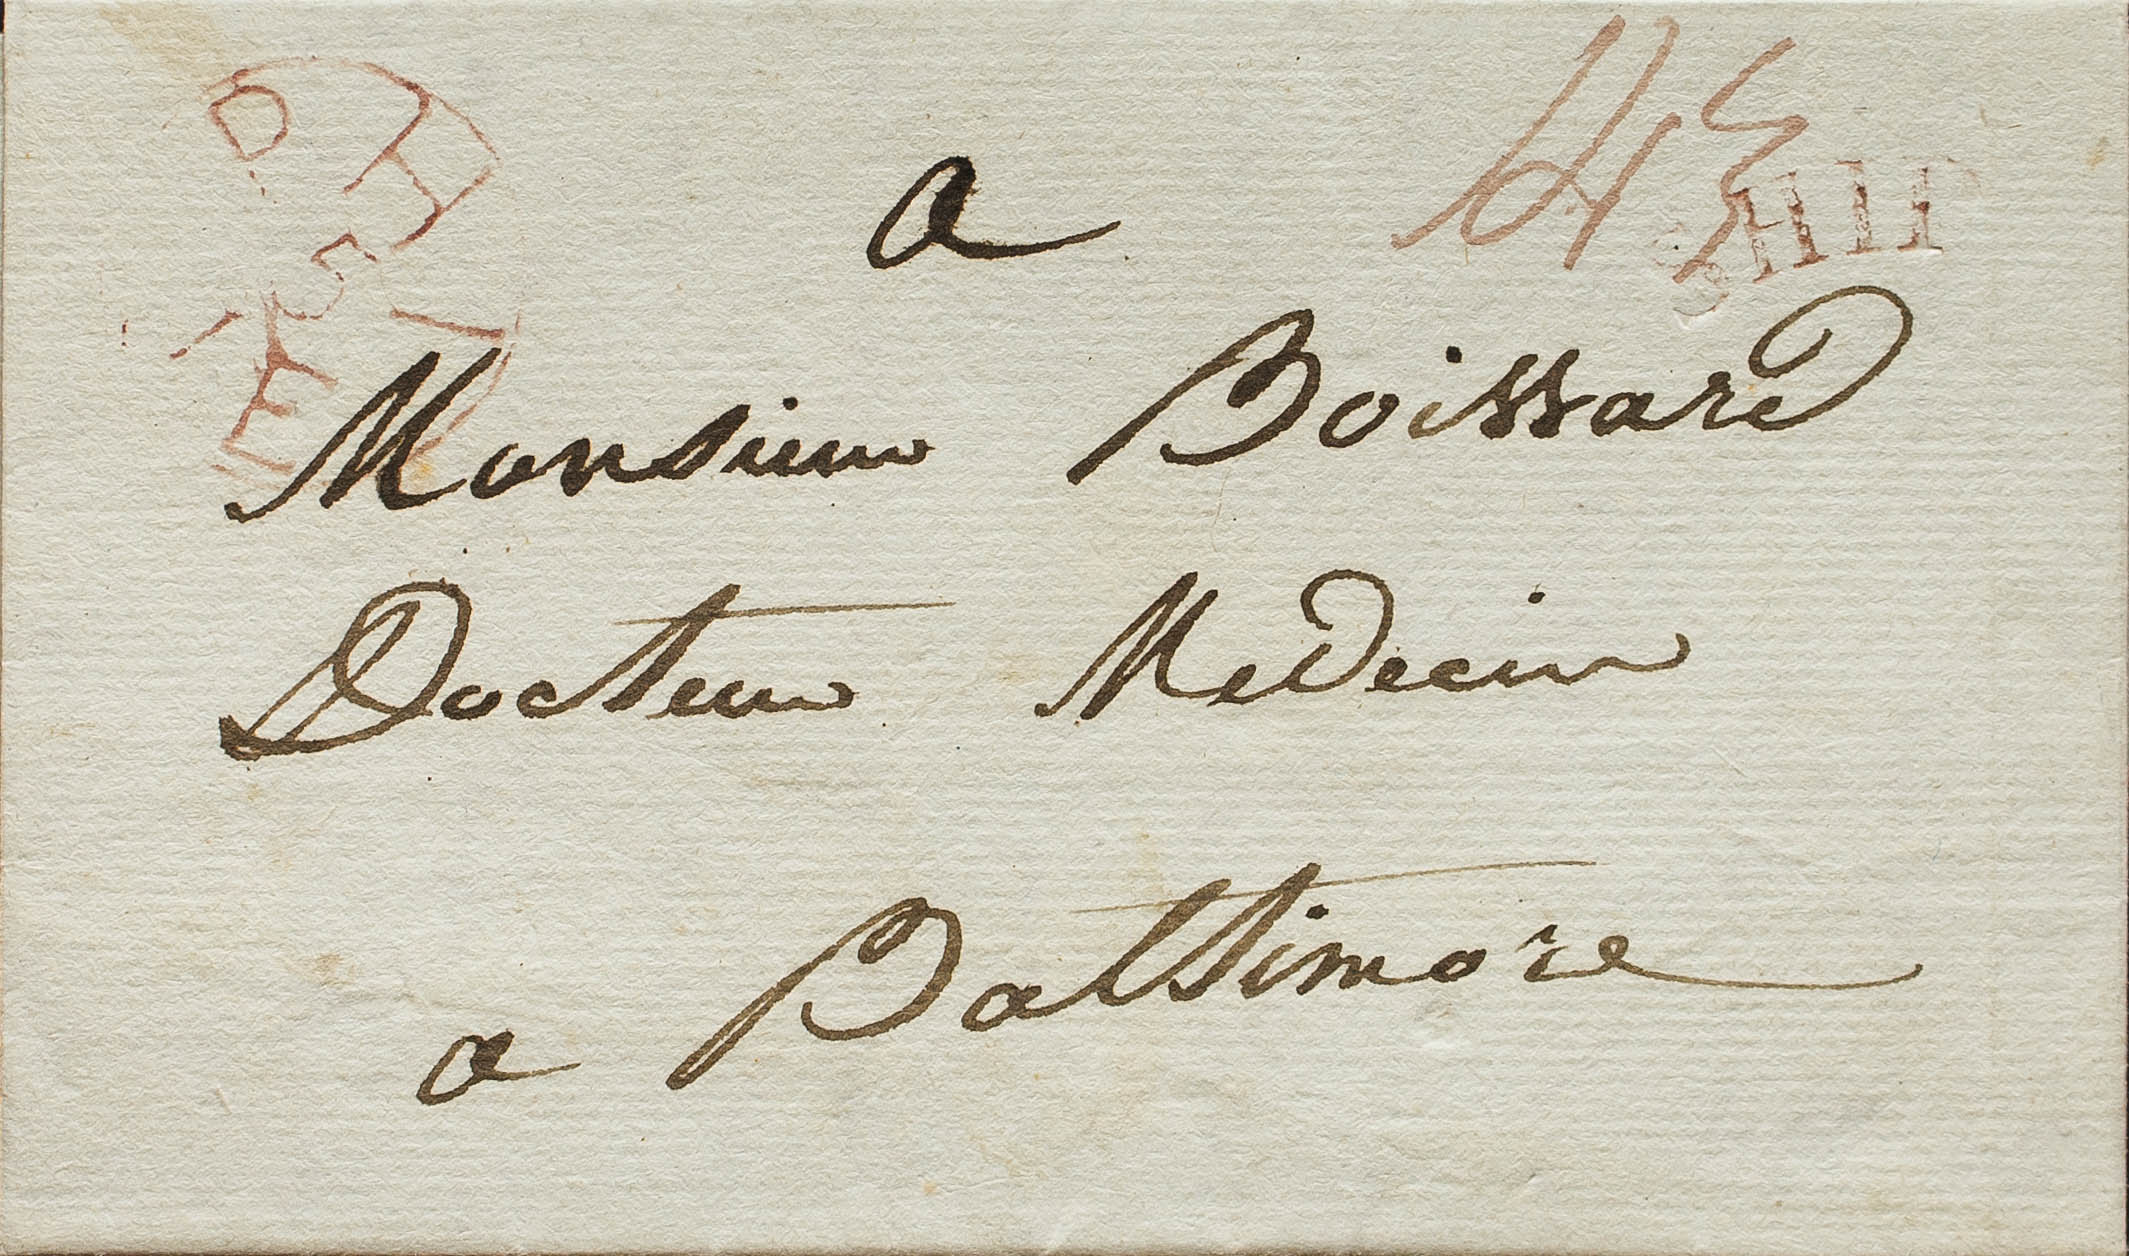 a
SHIP
Monsieur Boissard
Docteur Medecin
a Baltimore